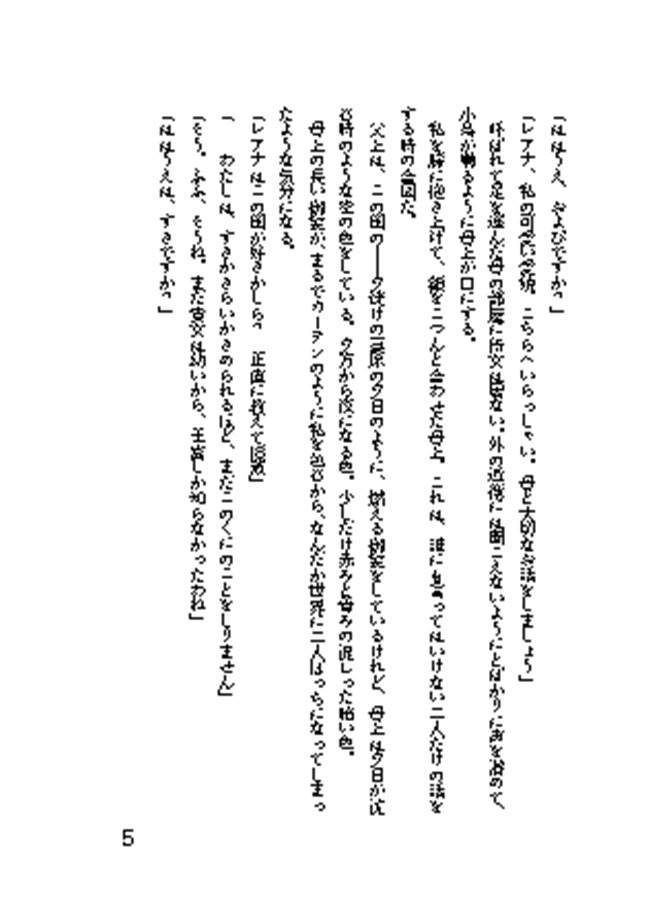 「ははうえ、およびですか？」
「レアナ、私の可愛い愛娘。こちらへいらっしゃい。母と大切なお話をしましょう」
呼ばれて足を運んだ母の部屋に侍女は居ない。外の近衛には聞こえないようにとばかりに声を潜めて、
小鳥が囀るように母上が口にする。
私を膝に抱き上げて、額をこつんと合わせた母上。これは、誰にも言ってはいけない二人だけの話を
する時の合図だ。
父上は、この国の――夕焼けの海原の夕日のように、燃える御髪をしているけれど、母上は夕日が沈
む時のような空の色をしている。夕方から夜になる色。少しだけ赤みと青みの混じった暗い色。
母上の長い御髪が、まるでカーテンのように私を包むから、なんだか世界に二人ぼっちになってしまっ
たような気分になる。
「レアナはこの国が好きかしら？　正直に教えて頂戴」
「　わたしは、すきかきらいかきめられるほど、まだこのくにのことをしりません」
「そう。ふふ、そうね。まだ貴女は幼いから、王宮しか知らなかったわね」
「ははうえは、すきですか？」
5